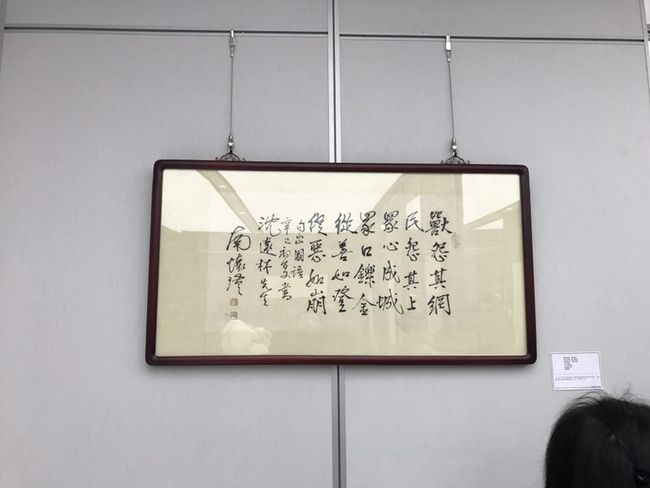 獸怨其網
民怨其上
眾心成城
眾口鑠金
從善如登
從惡如崩
句出國語
辛巳初夏書
沈遠林先生
南懷瑾